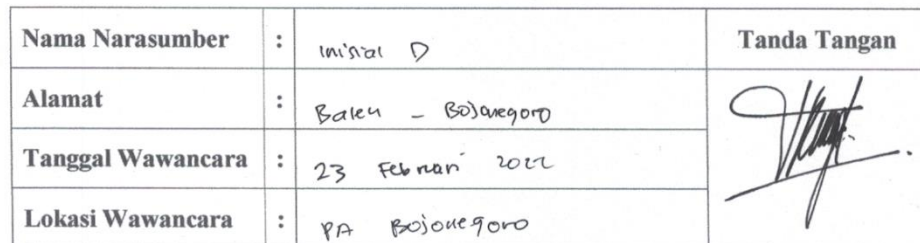 Nama Narasumber : inisial D Tanda Tangan
Alamat : Balen - Bojonegoro
Tanggal Wawancara : 23 Februari 2022
Lokasi Wawancara : PA Bojonegoro